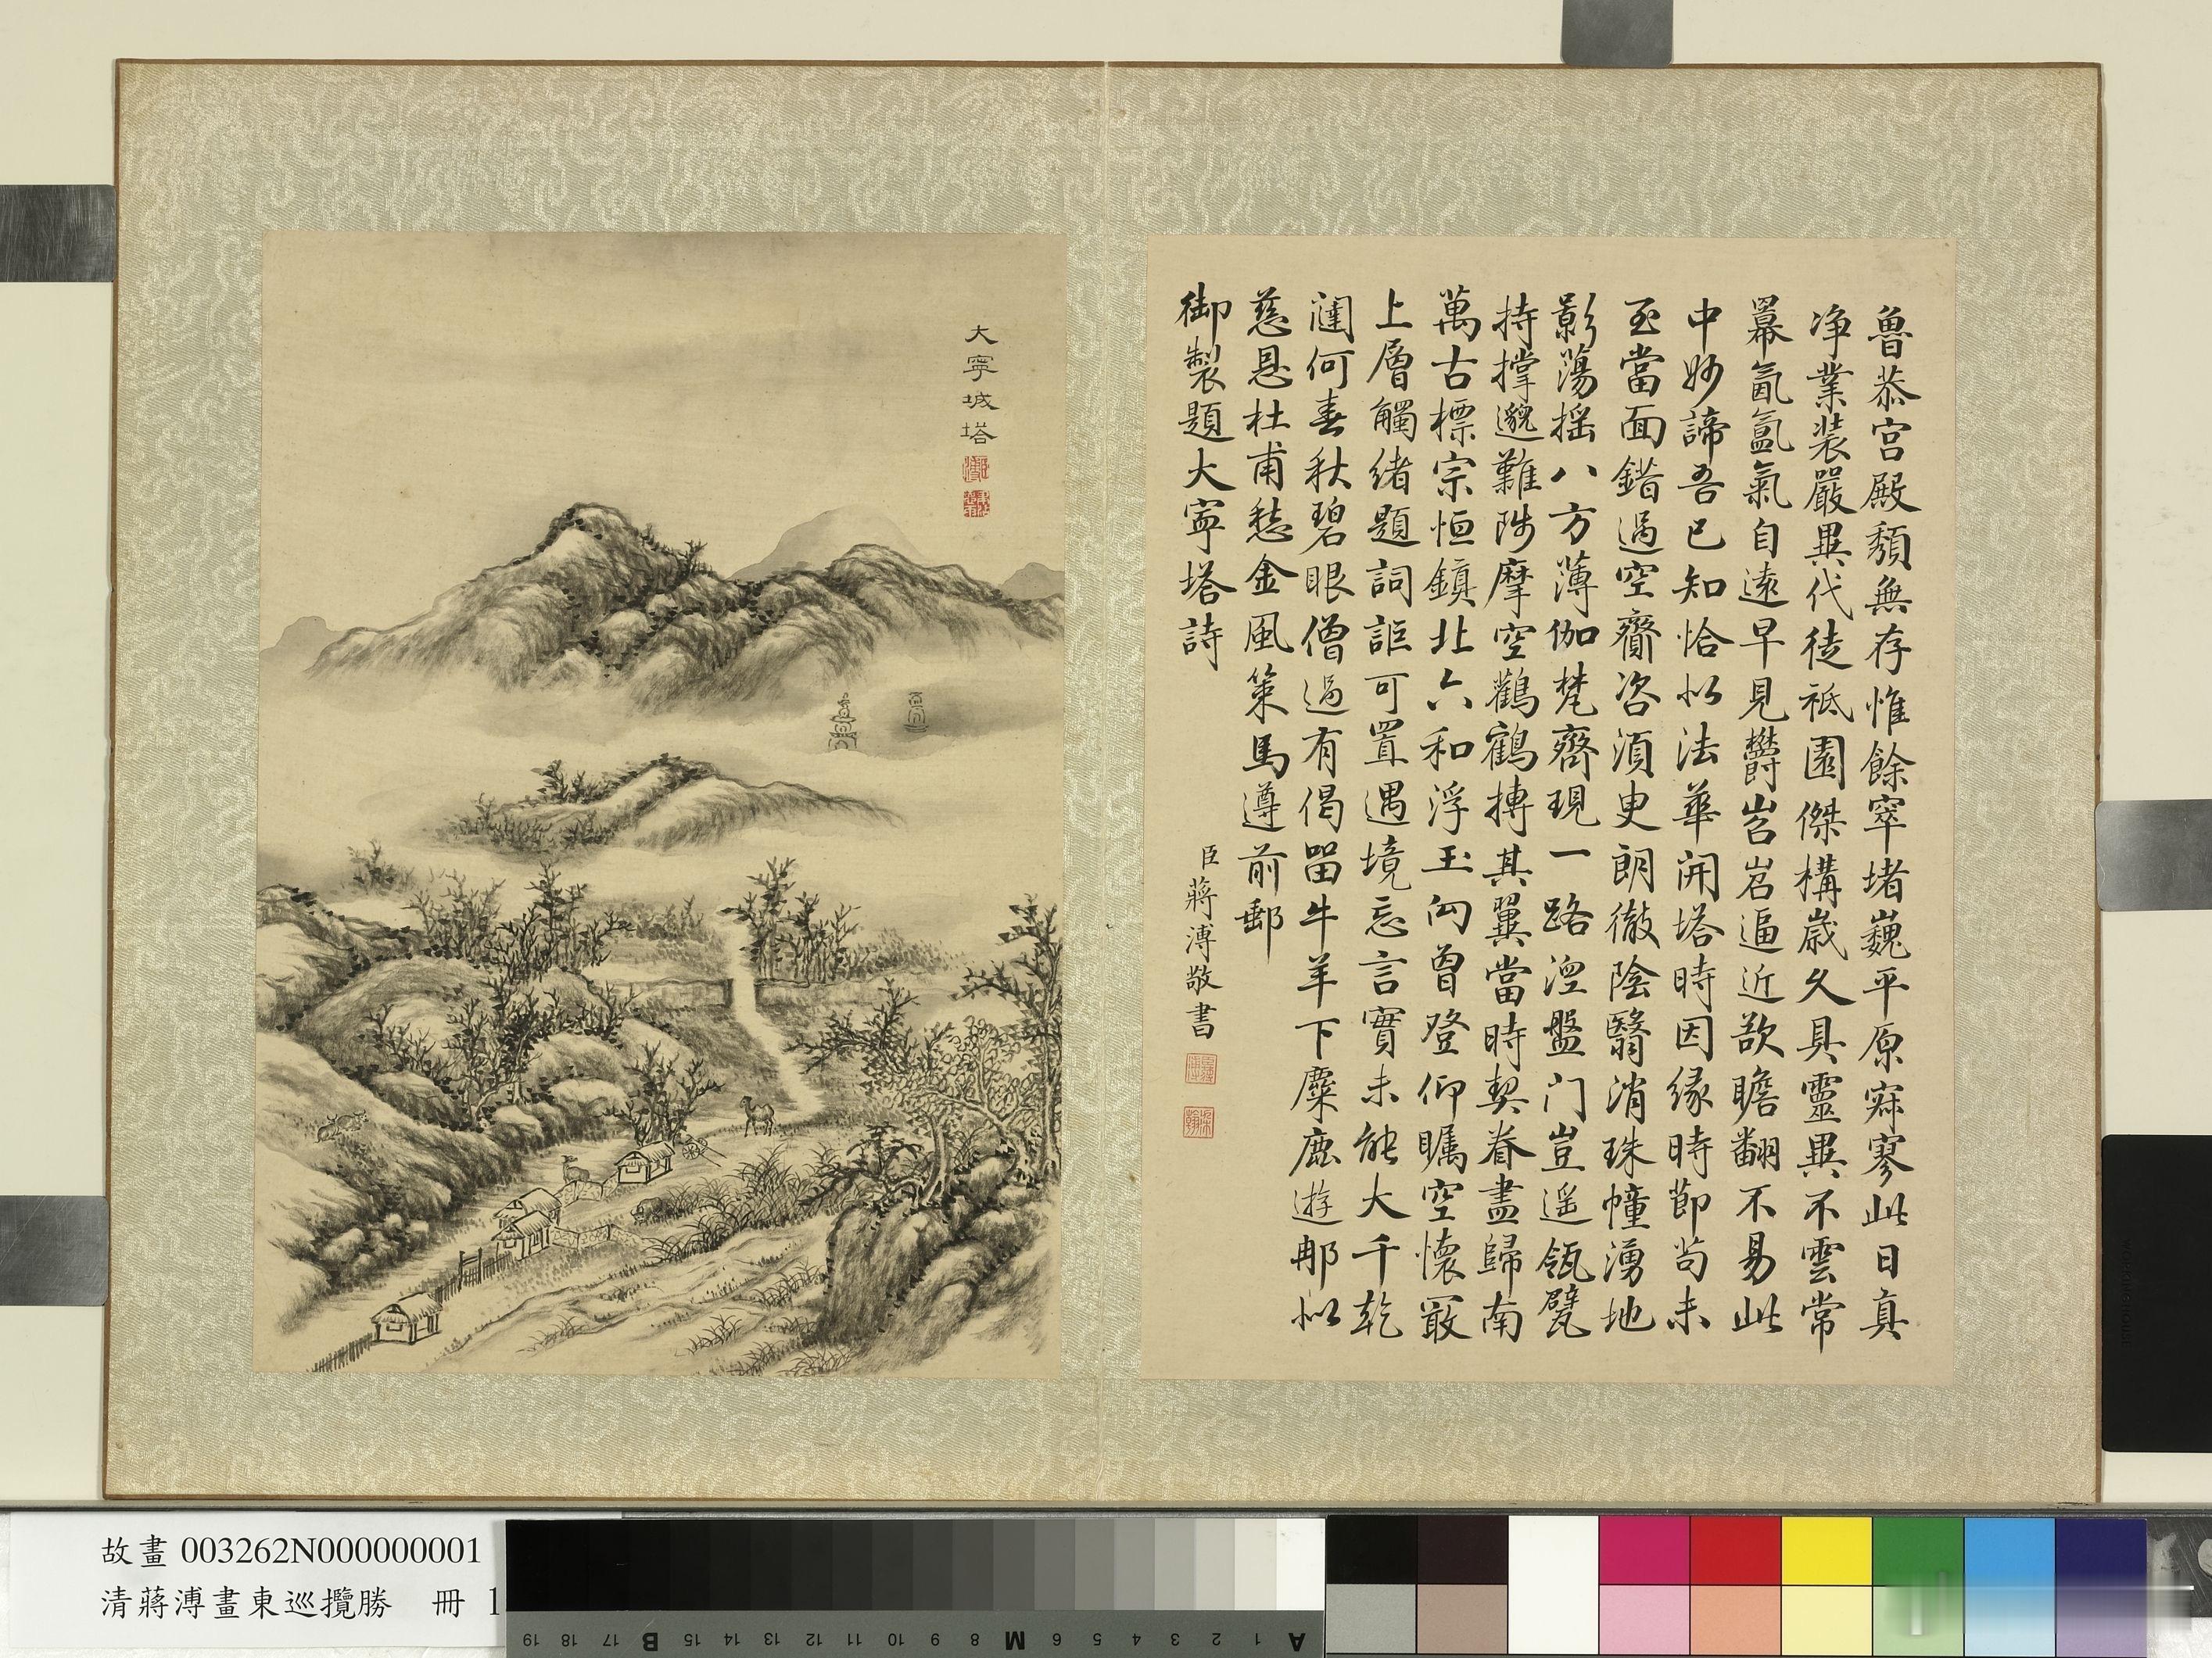 魯恭宮殿頹無存惟餘窣堵巍平原寂寥此日真
净業装嚴異代徒祇園傑構歲久具靈異不雲常
羃氤氳氣自遠早見欝岧岩逼近欲瞻翻不易此
中妙諦吾已知恰似法華開塔時因緣時節苟未
至當面錯過空齎咨須臾朗徹陰翳消珠幢湧地
影蕩揺八方薄伽梵齊現一路涅盤门豈遥瓴甓
持撑邈難陟摩空鸛鶴摶其翼當時契眷盡歸南
萬古標宗恒鎮北六和浮玉向曾登仰矚空懷最
上層觸绪題詞詎可置遇境忘言實未能大千乾
闥何春秋碧眼僧過有偈留牛羊下麋鹿遊那似
慈恩杜甫愁金風策馬遵前郵
御製題大寧塔詩
臣蔣溥敬書
大寧城塔
故畫 003262N000000001
清蔣溥畫東巡攬勝 冊 1
A 1 2 3 4 5 6 M 8 9 10 11 12 13 14 15 B 17 18 19